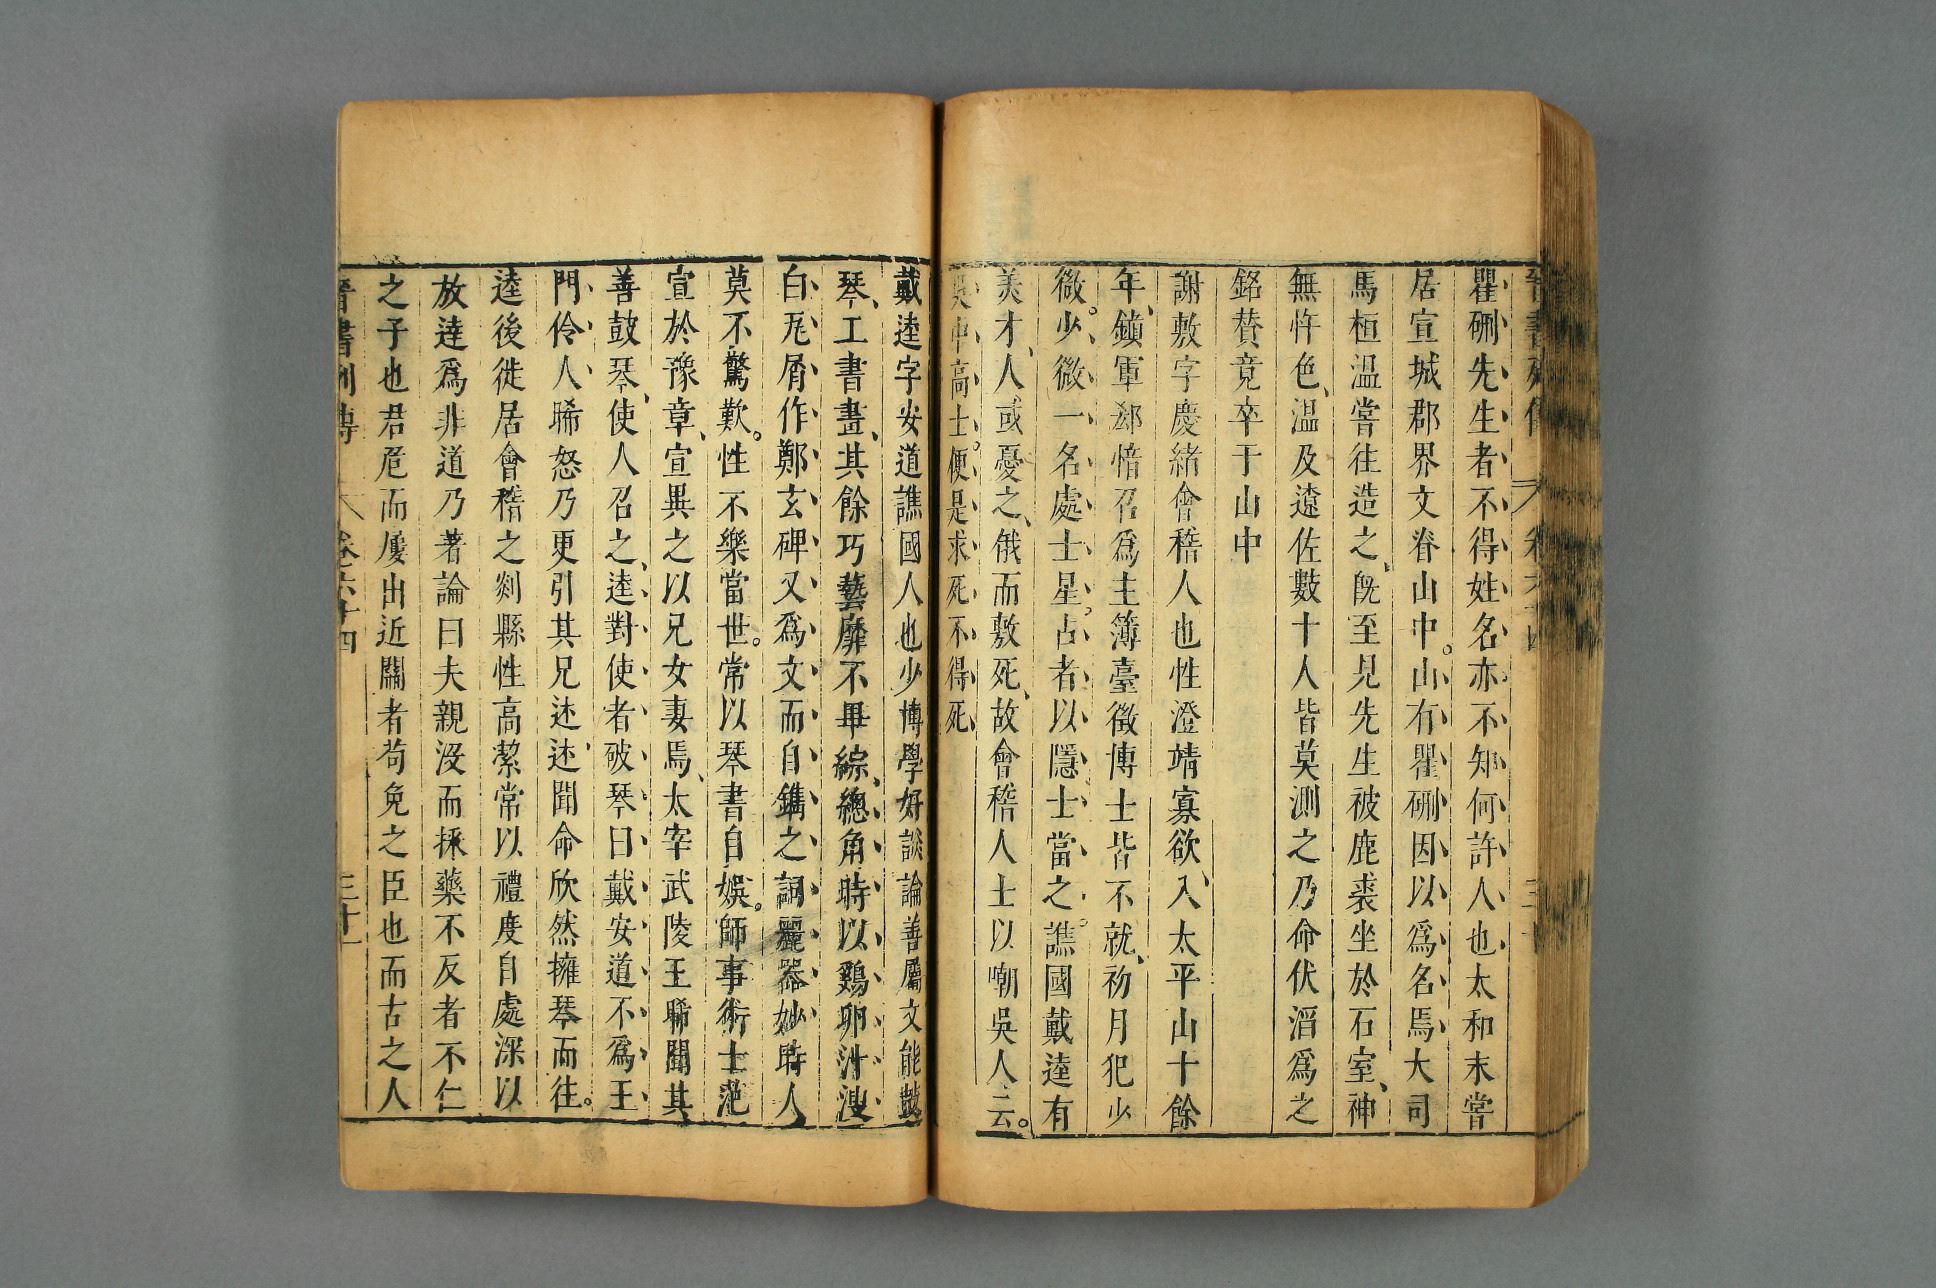 瞿硎先生者不得姓名亦不知何許人也太和末嘗
居宣城郡界文脊山中。山有瞿硎因以爲名焉大司
馬桓温嘗往造之、旣至見先生被鹿裘坐於石室、神
無忤色、温及遠佐數十人皆莫測之乃命伏滔爲之
銘贊竟卒于山中
謝敷字慶緒會稽人也性澄靖寡欲、入太平山十餘
年、鎭軍郄愔召爲主簿臺徵博士皆不就、初月犯少
微。少微一名處士星。占者以隱士當之。譙國戴逵有
美才、人或憂之、俄而敷死、故會稽人士以嘲吳人云。
吳中高士。便是求死不得死
戴逵字安道譙國人也少博學好談論善屬文能鼓
琴、工書畫、其餘巧藝靡不畢綜、總角時以鷄卵汁溲
白瓦屑作鄭玄碑又爲文而自鐫之詞麗器妙時人
莫不驚歎。性不樂當世。常以琴書自娛。師事術士范
宣於豫章、宣異之以兄女妻焉、太宰武陵王晞聞其
善鼓琴、使人召之、逵對使者破琴曰戴安道不爲王
門伶人、晞怒乃更引其兄述述聞命欣然擁琴而往。
逵後徙居會稽之剡縣性高潔常以禮度自處深以
放達爲非道乃著論曰夫親沒而採藥不反者不仁
之子也君危而屢出近關者苟免之臣也而古之人
晉書列傳 卷六十四 三十一